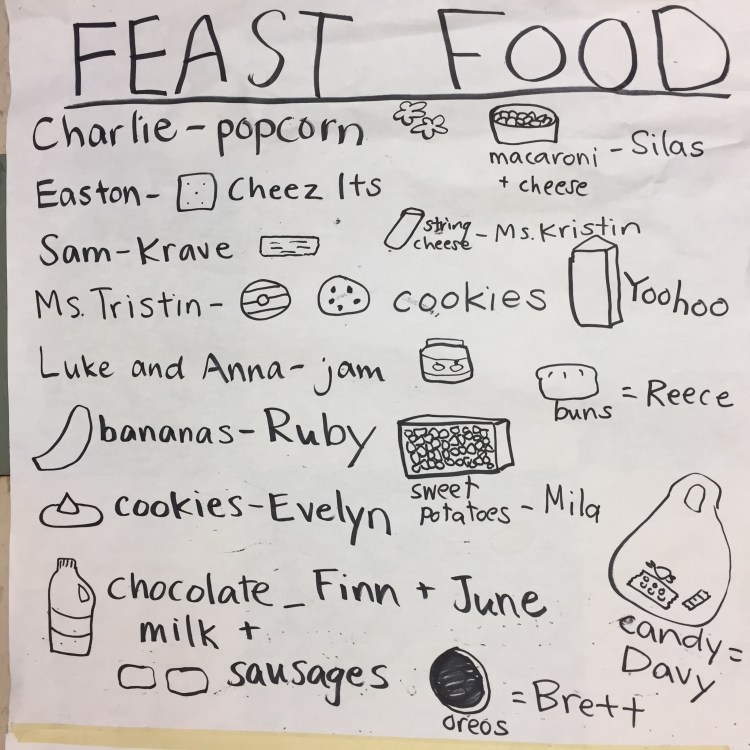 FEAST FOOD
Charlie - popcorn
macaroni - Silas
+ cheese
Easton - Cheez Its
string
cheese - Ms. Kristin
Sam - Krave
Ms. Tristin - cookies
Yoohoo
Luke and Anna - jam
buns = Reece
bananas - Ruby
sweet
potatoes - Mila
cookies - Evelyn
chocolate - Finn + June
milk +
sausages
candy =
Davy
oreos = Brett